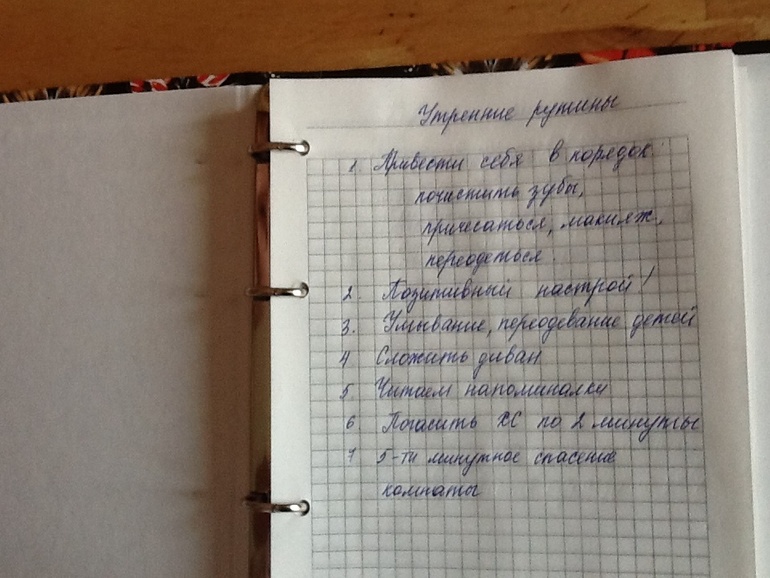 Утренние рутины
1. Привести себя в порядок:
почистить зубы,
причесаться, макияж,
переодеться.
2. Позитивный настрой!
3. Умывание, переодевание детей
4 Сложить диван
5 Читаем напоминалки
6 Погасить ХС по 2 минуты
7 5-ти минутное спасение
комнаты